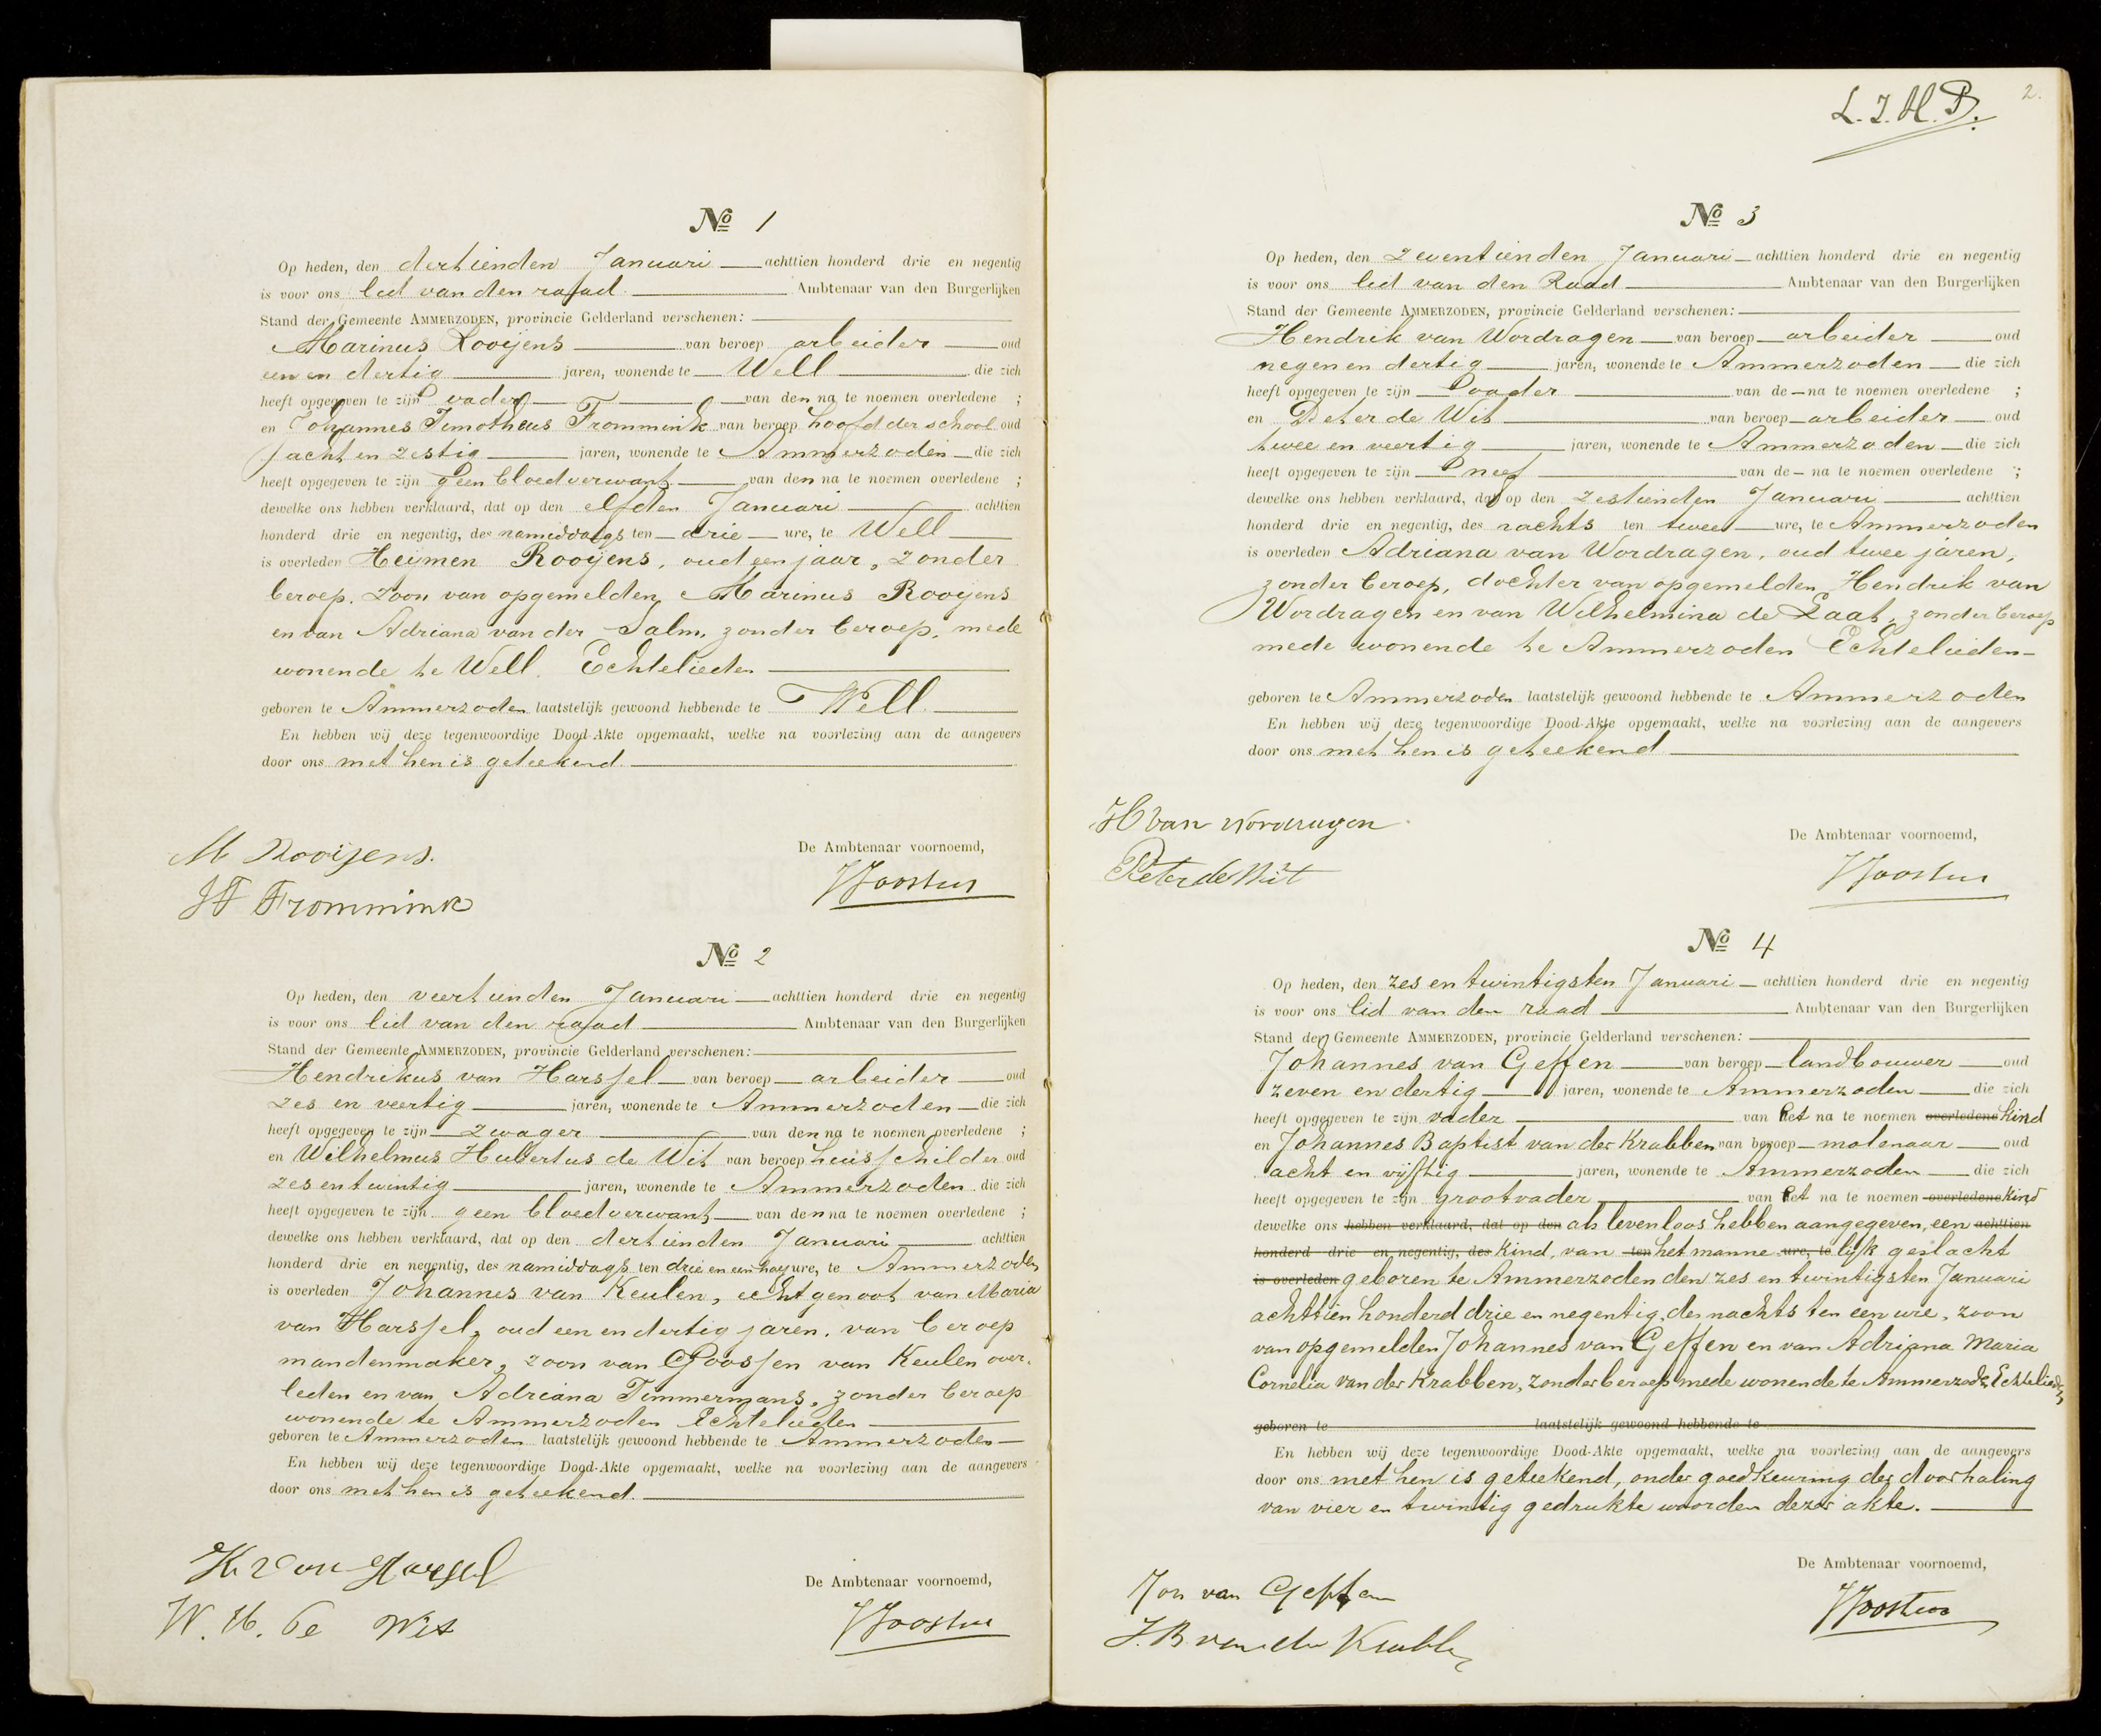 Nº 1
Op heden, den dertienden Januari achttien honderd drie en negentig
is voor ons lid van den raad Ambtenaar van den Burgerlijken
Stand der Gemeente AMMERZODEN, provincie Gelderland verschenen:
Marinus Rooijens van beroep arbeider oud
een en dertig jaren, wonende te Well die zich
heeft opgegeven te zijn vader van den na te noemen overledene ;
en Johannes Timotheus Frommink van beroep hoofd der school oud
acht en zestig jaren, wonende te Ammerzoden die zich
heeft opgegeven te zijn geen bloedverwant van den na te noemen overledene ;
dewelke ons hebben verklaard, dat op den elfden Januari achttien
honderd drie en negentig, des namiddags ten drie ure, te Well
is overleden Heijmen Rooijens, oud een jaar, zonder
beroep, zoon van opgemelden Marinus Rooijens
en van Adriana van der Salm, zonder beroep, mede
wonende te Well. Echtelieden
geboren te Ammerzoden laatstelijk gewoond hebbende te Well
En hebben wij deze tegenwoordige Dood-Akte opgemaakt, welke na voorlezing aan de aangevers
door ons met hen is geteekend.
M Rooijens.
De Ambtenaar voornoemd,
JT Frommink
Nº 2
Op heden, den veertienden Januari achttien honderd drie en negentig
is voor ons lid van den raad Ambtenaar van den Burgerlijken
Stand der Gemeente AMMERZODEN, provincie Gelderland verschenen:
Hendrikus van Harssel van beroep arbeider oud
zes en veertig jaren, wonende te Ammerzoden die zich
heeft opgegeven te zijn zwager van den na te noemen overledene ;
en Wilhelmus Hubertus de Wit van beroep huisschilder oud
zes en twintig jaren, wonende te Ammerzoden die zich
heeft opgegeven te zijn geen bloedverwant van den na te noemen overledene ;
dewelke ons hebben verklaard, dat op den dertienden Januari achttien
honderd drie en negentig, des namiddags ten drie en een half ure, te Ammerzoden
is overleden Johannes van Keulen, echtgenoot van Maria
van Harssel, oud een en dertig jaren, van beroep
mandenmaker, zoon van Goossen van Keulen over-
leden en van Adriana Timmermans, zonder beroep
wonende te Ammerzoden Echtelieden
geboren te Ammerzoden laatstelijk gewoond hebbende te Ammerzoden
En hebben wij deze tegenwoordige Dood-Akte opgemaakt, welke na voorlezing aan de aangevers
door ons met hen is geteekend.
H. van Harssel
De Ambtenaar voornoemd,
W. H. de Wit
L. J. H. B.
2.
Nº 3
Op heden, den zeventienden Januari achttien honderd drie en negentig
is voor ons lid van den Raad Ambtenaar van den Burgerlijken
Stand der Gemeente AMMERZODEN, provincie Gelderland verschenen:
Hendrik van Wordragen van beroep arbeider oud
negen en dertig jaren, wonende te Ammerzoden die zich
heeft opgegeven te zijn vader van de na te noemen overledene ;
en Peter de Wit van beroep arbeider oud
twee en veertig jaren, wonende te Ammerzoden die zich
heeft opgegeven te zijn neef van de na te noemen overledene ;
dewelke ons hebben verklaard, dat op den zestienden Januari achttien
honderd drie en negentig, des nachts ten twee ure, te Ammerzoden
is overleden Adriana van Wordragen, oud twee jaren,
zonder beroep, dochter van opgemelden Hendrik van
Wordragen en van Wilhelmina de Laat, zonder beroep
mede wonende te Ammerzoden Echtelieden
geboren te Ammerzoden laatstelijk gewoond hebbende te Ammerzoden
En hebben wij deze tegenwoordige Dood-Akte opgemaakt, welke na voorlezing aan de aangevers
door ons met hen is geteekend
H van Wordragen
De Ambtenaar voornoemd,
Peter de Wit
Nº 4
Op heden, den zes en twintigsten Januari achttien honderd drie en negentig
is voor ons lid van den raad Ambtenaar van den Burgerlijken
Stand der Gemeente AMMERZODEN, provincie Gelderland verschenen:
Johannes van Geffen van beroep landbouwer oud
zeven en dertig jaren, wonende te Ammerzoden die zich
heeft opgegeven te zijn vader van het na te noemen overledene kind
en Johannes Baptist van der Krabben van beroep molenaar oud
acht en vijftig jaren, wonende te Ammerzoden die zich
heeft opgegeven te zijn grootvader van het na te noemen overledene kind
dewelke ons hebben verklaard, dat op den als levenloos hebben aangegeven, een achttien
honderd drie en negentig, des kind, van ten het manne ure, te lijk geslacht
is overleden geboren te Ammerzoden den zes en twintigsten Januari
achttien honderd drie en negentig, des nachts ten een ure, zoon
van opgemelden Johannes van Geffen en van Adriana Maria
Cornelia van der Krabben, zonder beroep mede wonende te Ammerzoden, Echtelieden
geboren te laatstelijk gewoond hebbende te
En hebben wij deze tegenwoordige Dood-Akte opgemaakt, welke na voorlezing aan de aangevers
door ons met hen is geteekend, onder goedkeuring der doorhaling
van vier en twintig gedrukte woorden dezer akte.
De Ambtenaar voornoemd,
Joh van Geffen
J. B. van der Krabben